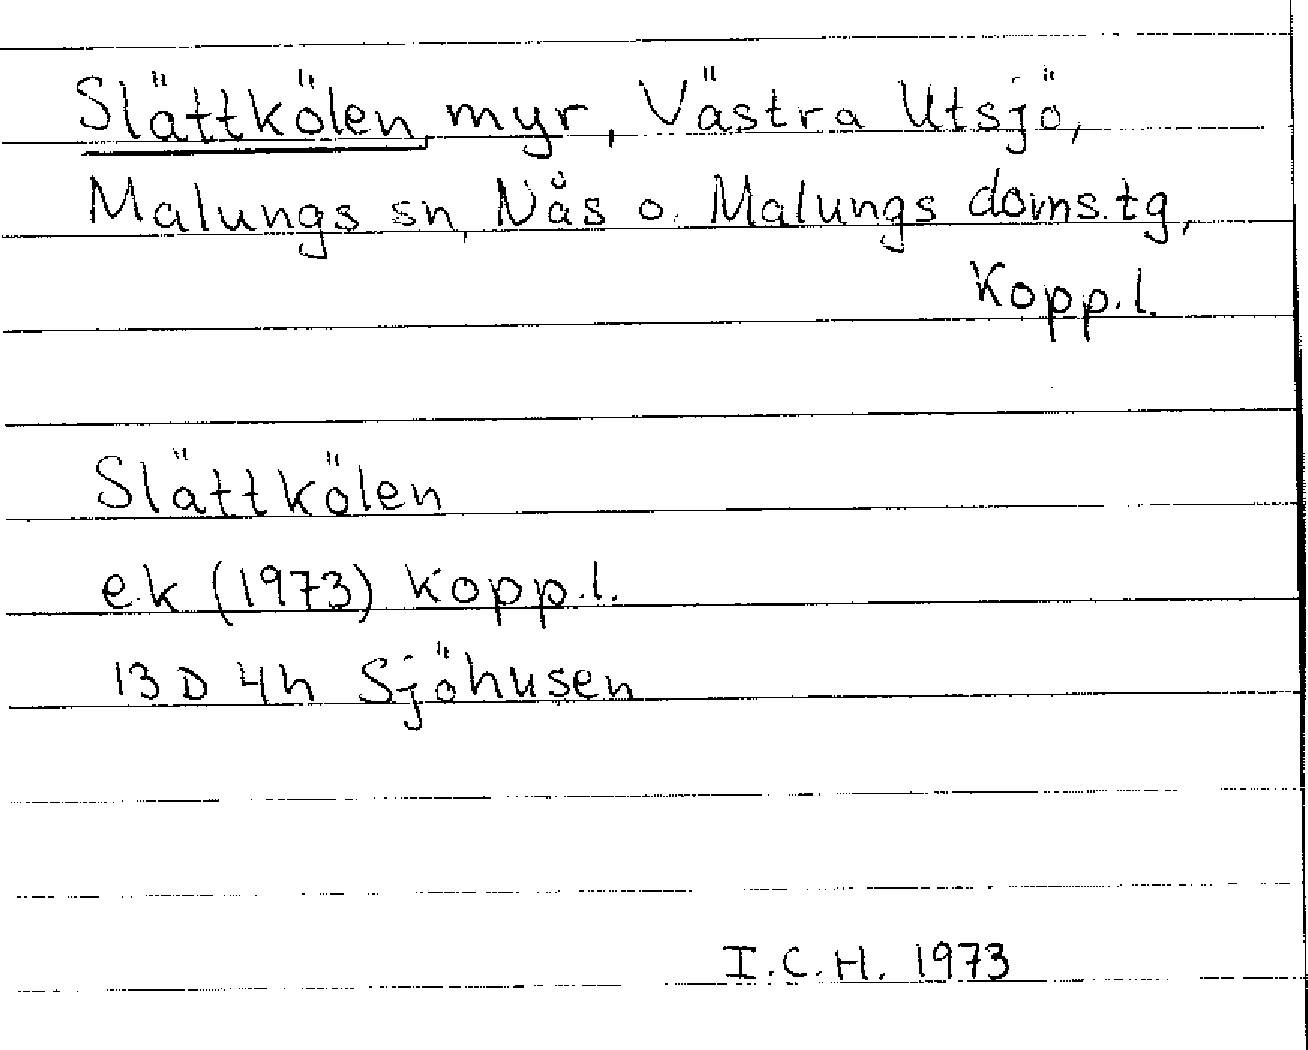 Slättkölen, myr, Västra Utsjö,
Malungs sn, Nås o. Malungs doms.tg,
Kopp.l.
Slättkölen
ek (1973) Kopp.l.
13 D 4h Sjöhusen
I.C.H. 1973